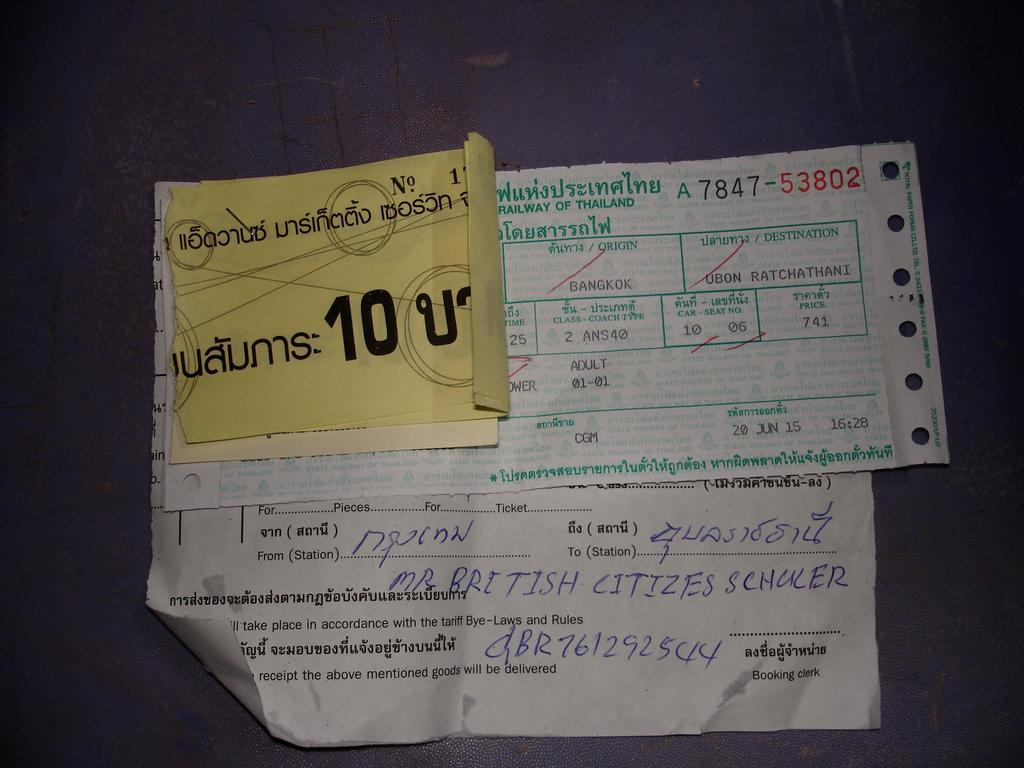 Nº 1
แอ็ดวานซ์ มาร์เก็ตติ้ง เซอร์วิท จ
นสัมภาระ 10 บา
ฟแห่งประเทศไทย A 7847-53802
RAILWAY OF THAILAND
วโดยสารรถไฟ
ต้นทาง / ORIGIN ปลายทาง / DESTINATION
BANGKOK UBON RATCHATHANI
ถึง ชั้น - ประเภทตู้ คันที่ - เลขที่นั่ง ราคาตั๋ว
TIME CLASS - COACH TYPE CAR - SEAT NO. PRICE
25 2 ANS40 10 06 741
ADULT
OWER 01-01
สถานีขาย รหัสการออกตั๋ว
CGM 20 JUN 15 16:28
* โปรดตรวจสอบรายการในตั๋วให้ถูกต้อง หากผิดพลาดให้แจ้งผู้ออกตั๋วทันที
(ไม่รวมค่าขนขึ้น-ลง)
For....................Pieces....................For....................Ticket....................
จาก ( สถานี ) กรุงเทพ ถึง ( สถานี ) อุบลราชธานี
From (Station) To (Station)
MR BRITISH CITIZES SCHULER
การส่งของจะต้องส่งตามกฎข้อบังคับและระเบียบการ
ill take place in accordance with the tariff Bye-Laws and Rules
ัญนี้ จะมอบของที่แจ้งอยู่ข้างบนนี้ให้ GBR761292544 ลงชื่อผู้จำหน่าย
receipt the above mentioned goods will be delivered Booking clerk